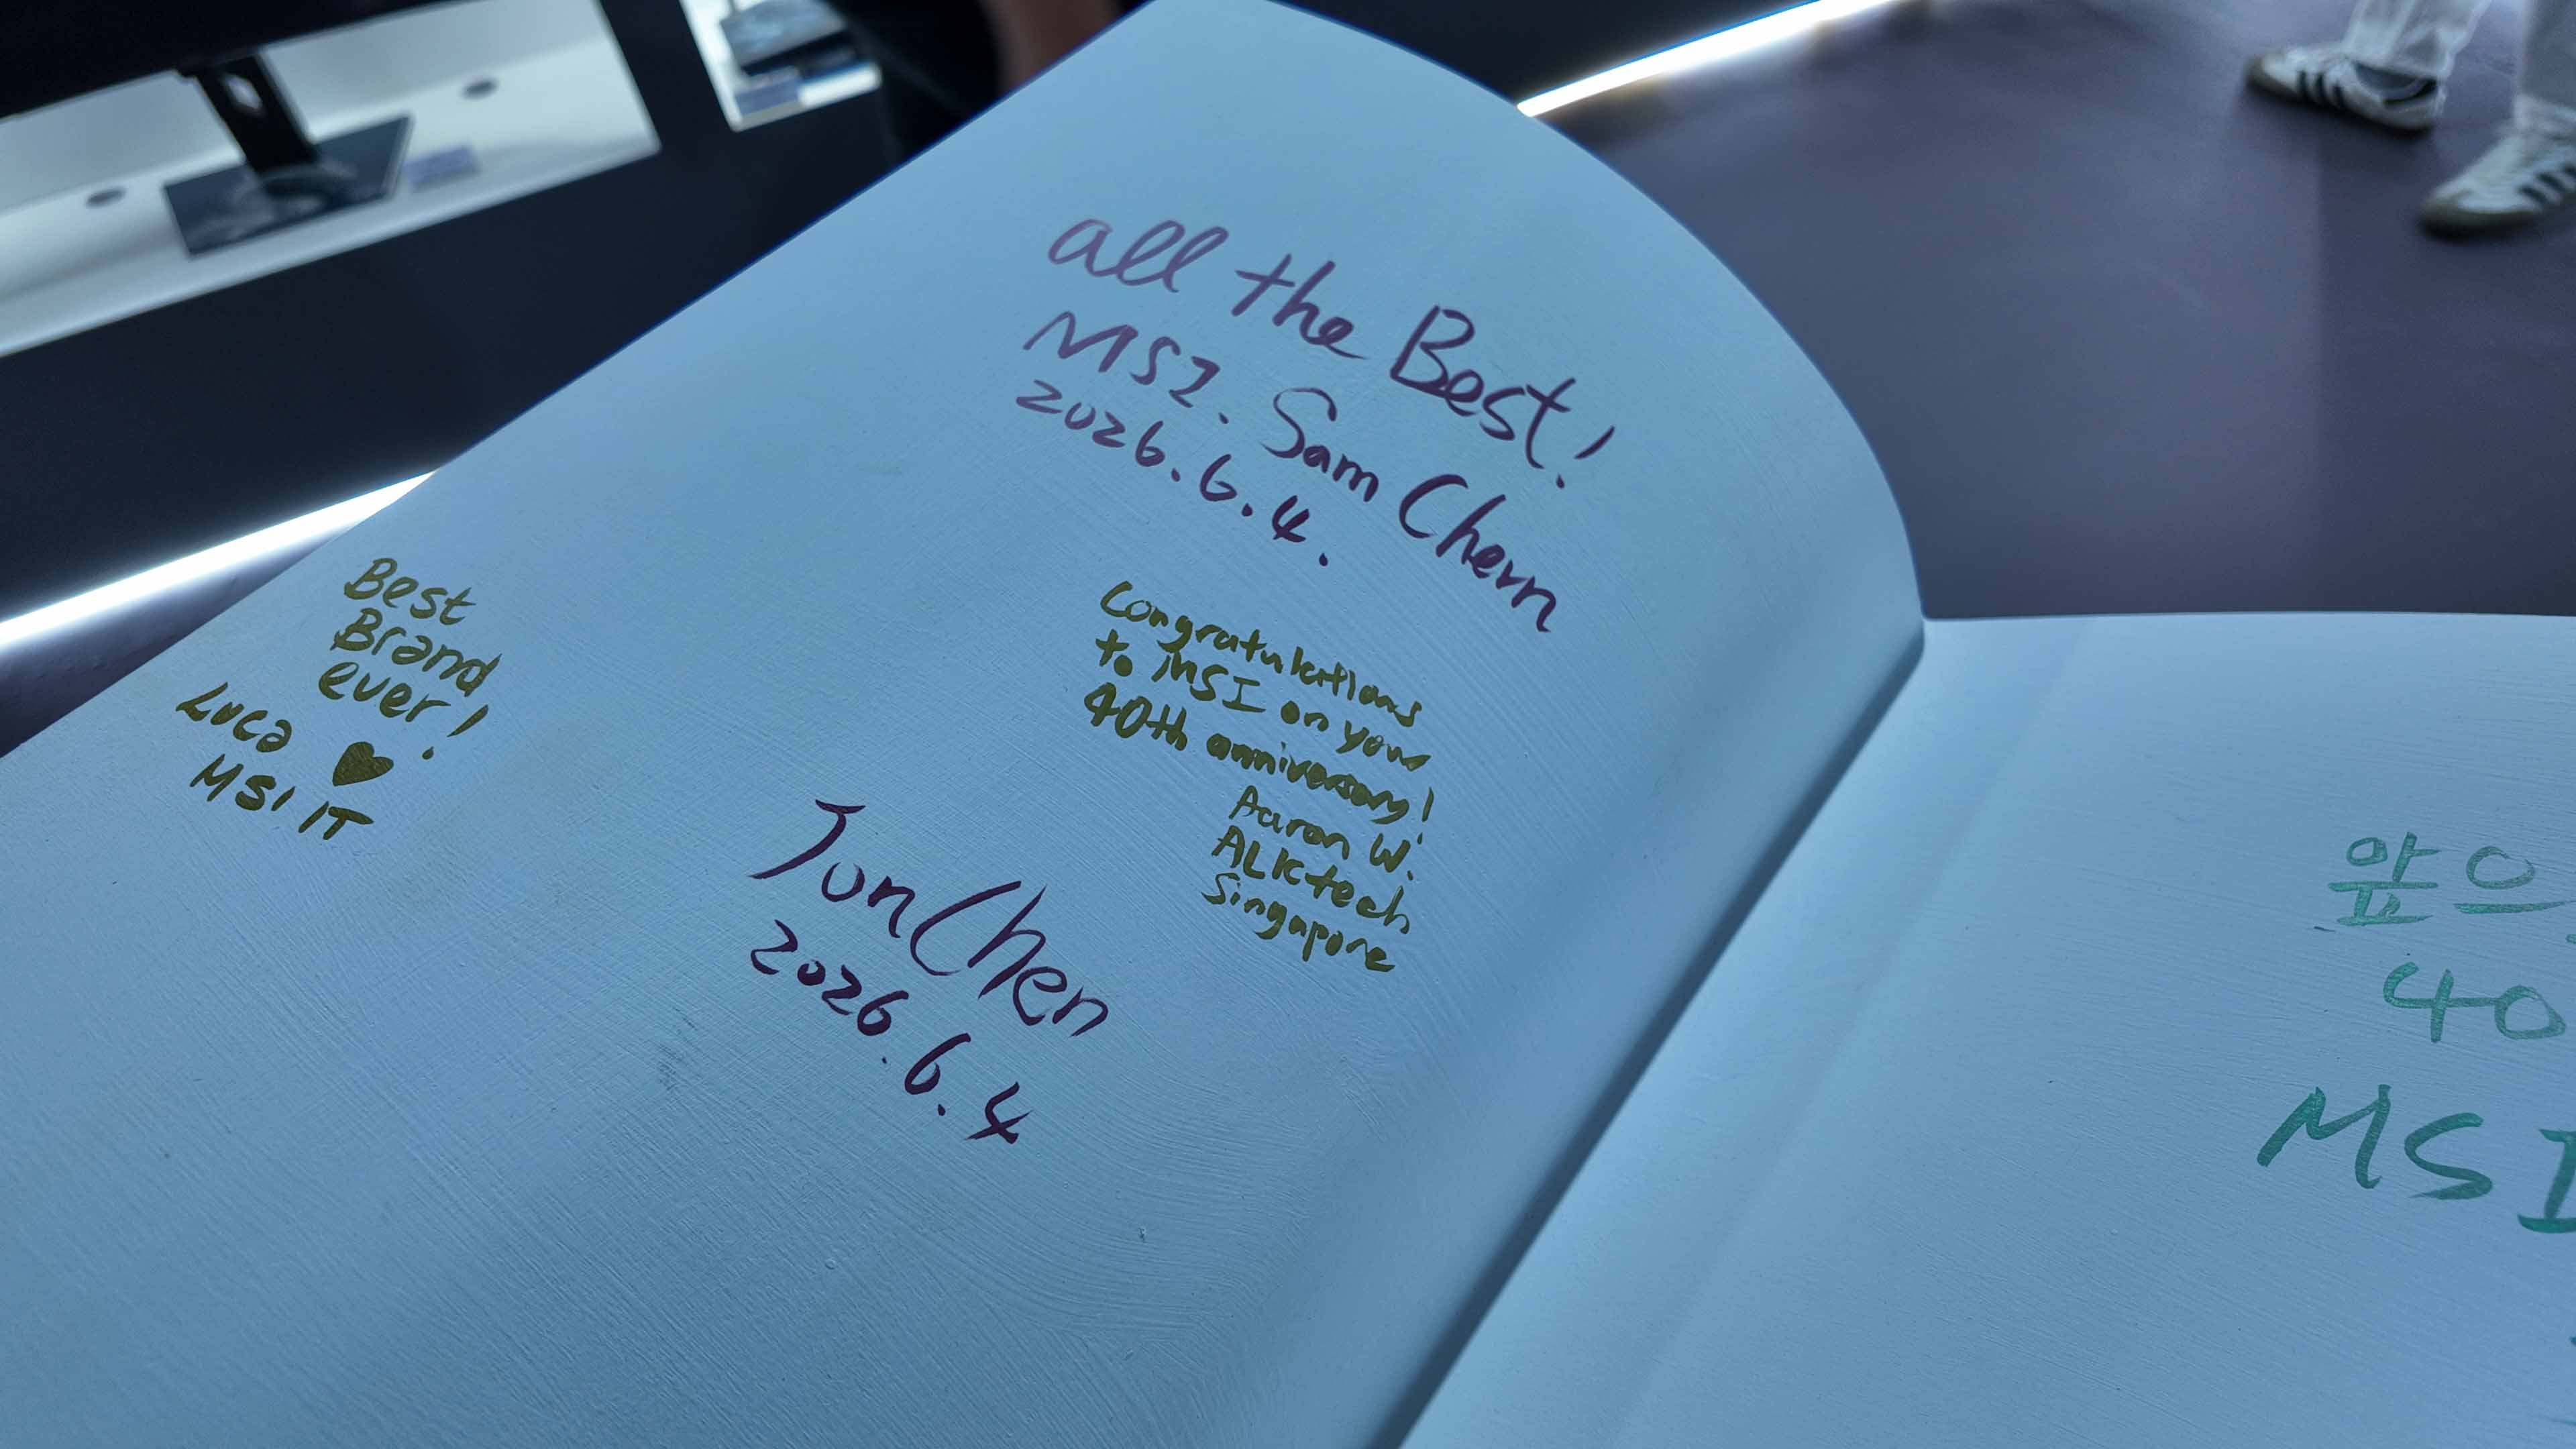 all the Best!
MSI. Sam Chern
2026.6.4.
Best
Brand
ever!
Luca ♥
MSI IT
Congratulations
to MSI on your
40th anniversary!
Aaron W.
ALKtech
Singapore
Jun Chen
2026.6.4
앞으
40
MSI